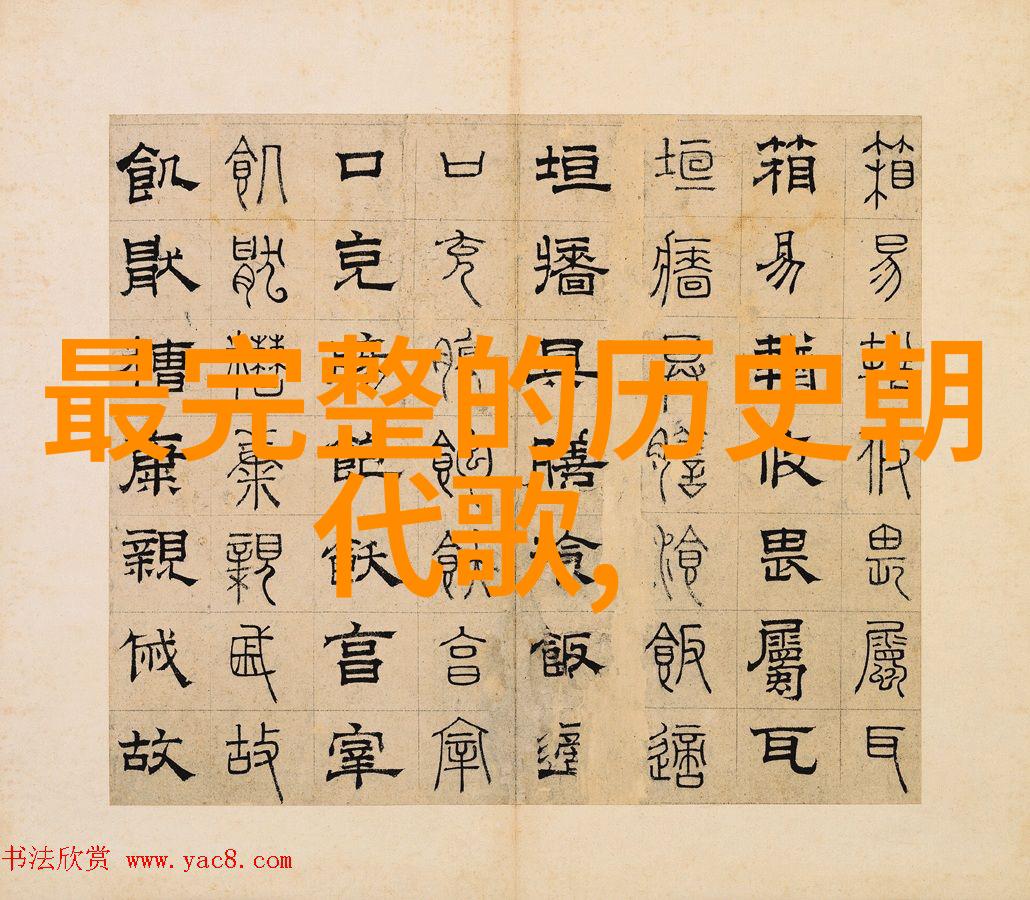 最完整的历史朝
代歌,
箱易輶攸畏屬耳
箱易輶攸畏屬耳
垣牆具膳飡飯適
垣牆具膳飡飯適
口充腸飽飫亯宰
口充腸飽飫亯宰
飢猒糟糠親戚故
飢猒糟糠親戚故
书法欣赏 www.yac8.com